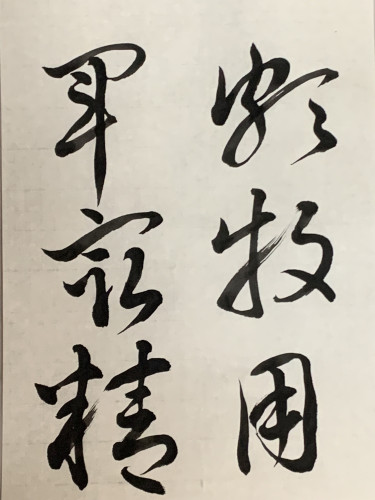 頗牧用
軍最精